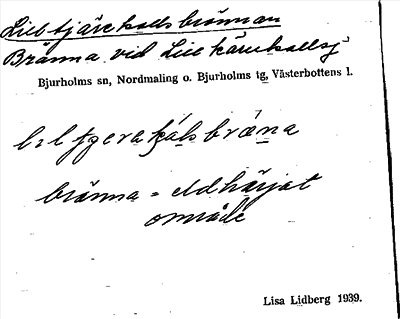 Lill tjärekallsbrännan
Bränna vid Lill kärrkallsj
Bjurholms sn, Nordmaling o. Bjurholms tg, Västerbottens l.
bränna = eldhärjat
område
Lisa Lidberg 1939.